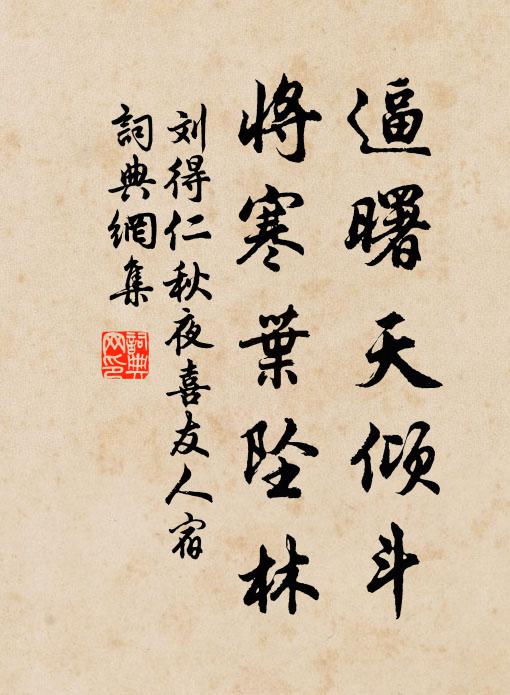 逼曙天倾斗
将寒葉坠林
刘得仁秋夜喜友人宿
詞典網集
詞典网印